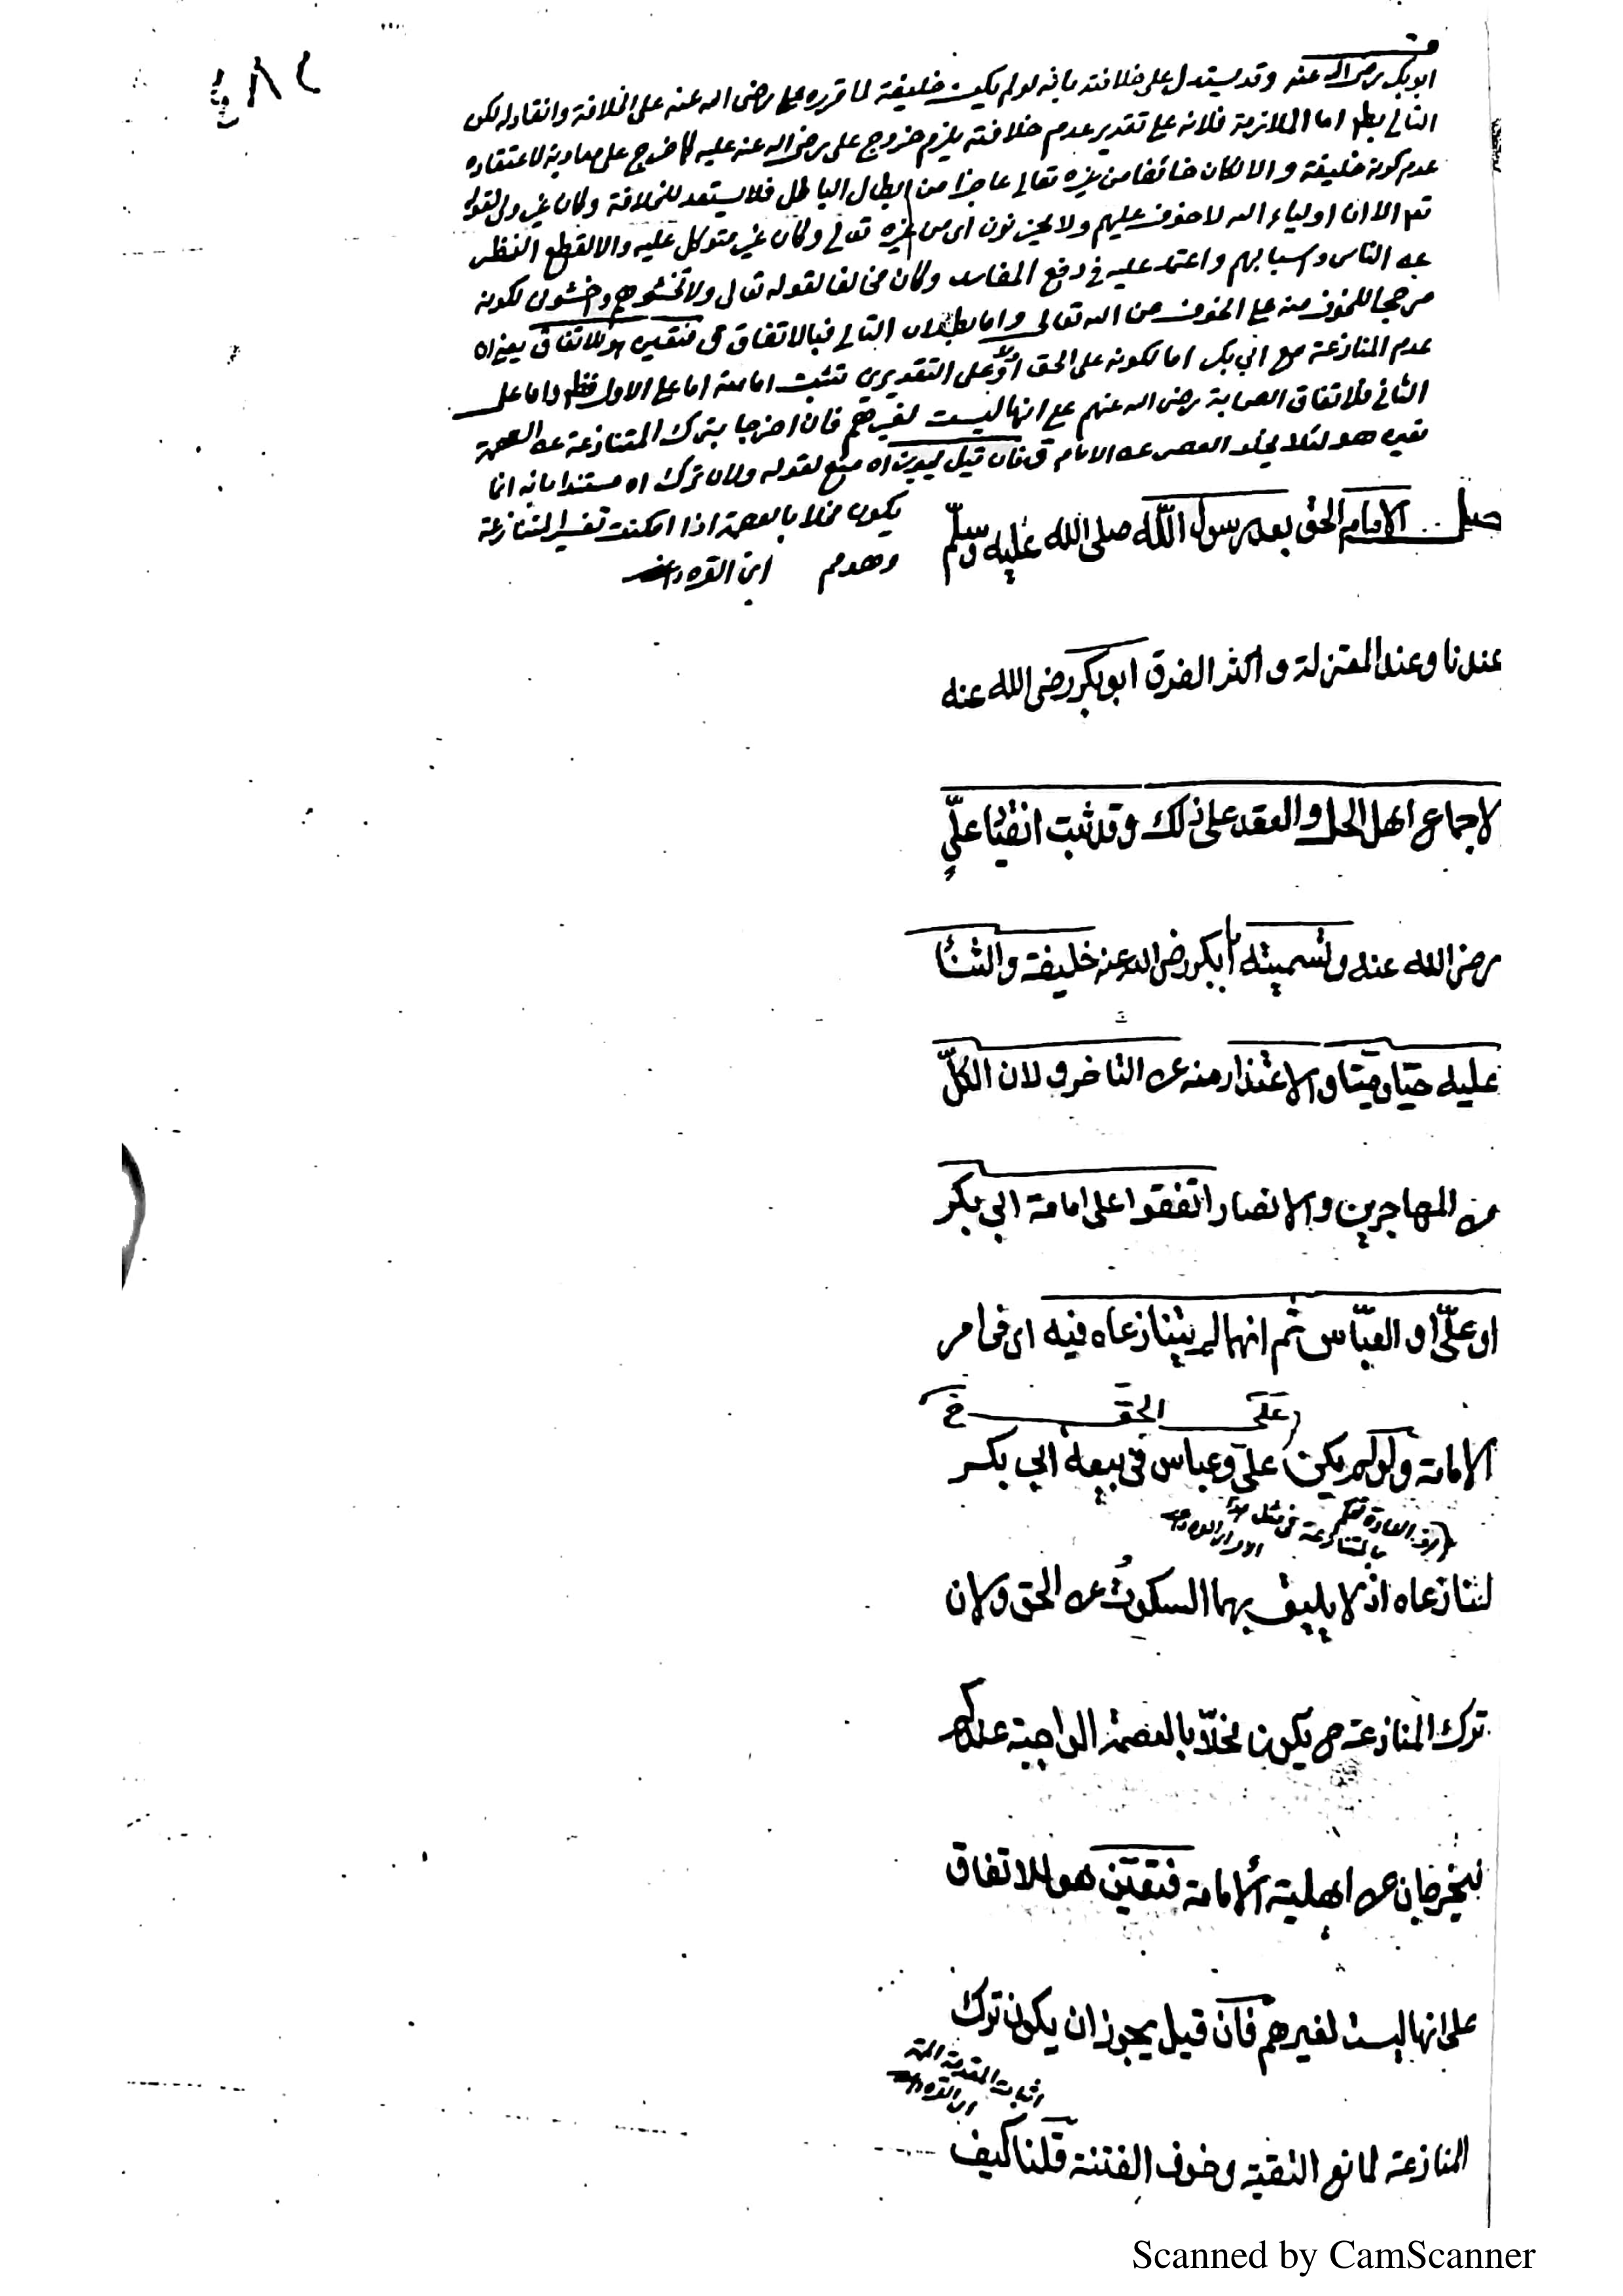 ٤٨٢
ابوبكر رضى الله عنه وقد يستدل على خلافته بانه لولم يكن خليفة لما قرره على رضى الله عنه على الخلافة وانقاد له لكن
التالى بطم اما الملازمة فلانه على تقدير عدم خلافته يلزم خروج على رضى الله عنه عليه كما خرج على معاوية لاعتقاده
عدم كونه خليفة والا لكان خائفا من غيره تعالى عاجزا من ابطال الباطل فلا يستعد للخلافة ولكان غير ولى لقوله
تعم الا ان اولياء الله لا خوف عليهم ولا يحزنون اى من غيره تعالى ولكان غير متوكل عليه والا لقطع النظر
عن الناس واسبابهم واعتمد عليه فى دفع المفاسد ولكان مخالفا لقوله تعالى ولا تخشوهم واخشونى لكونه
مرجحا للخوف منه على الخوف من الله تعالى واما بطلان التالى فبالاتفاق ق فتقين هو للاتفاق يعنى ان
عدم المنازعة مع ابى بكر اما لكونه على الحق اولا وعلى التقديرين تثبت امامته اما على الاول فظم واما على
الثانى فلاتفاق الصحابة رضى الله عنهم على انها ليست لغيرهم فان اخرجا بترك المتنازعة عن العصمة
تعين هو لئلا يخلو العصر عن الامام ق فان قيل يجوز اه منع لقوله ولان ترك اه مستندا بانه انما
يكون مخلا بالعصمة اذا امكنت تفسير المنازعة
وهو مم ابن القره داغى
فصل الامام الحق بعد رسول الله صلى الله عليه وسلم
عندنا وعند المعتزلة واكثر الفرق ابوبكر رضى الله عنه
لاجماع اهل الحل والعقد على ذلك وقد ثبت انقياد علىّ
رضى الله عنه وتسميته ابا بكر رضى الله عنه خليفة والثناء
عليه حيّا وميّتا والاعتذار منه عن التاخر ولان الكلّ
من المهاجرين والانصار اتفقوا على امامة ابى بكر
او علىّ او العبّاس ثم انهما لم يتنازعاه فيه اى فى امر
على الحق خ
الامامة ولو لم يكن علىّ وعباس فى بيعة ابى بكر
العادة تحكم بالمنازعة فى مثل هذا
لتنازعاه اذ لا يليق بهما السكوت عن الحق ولان
ترك المنازعة ح يكون مخلّا بالعصمة الواجبة عندكم
فيخرجان عن اهلية الامامة فتقين هو للاتفاق
على انها ليست لغيرهم فان قيل يجوز ان يكون ترك
المنازعة لمانع التقية وخوف الفتنة قلنا كيف
Scanned by CamScanner